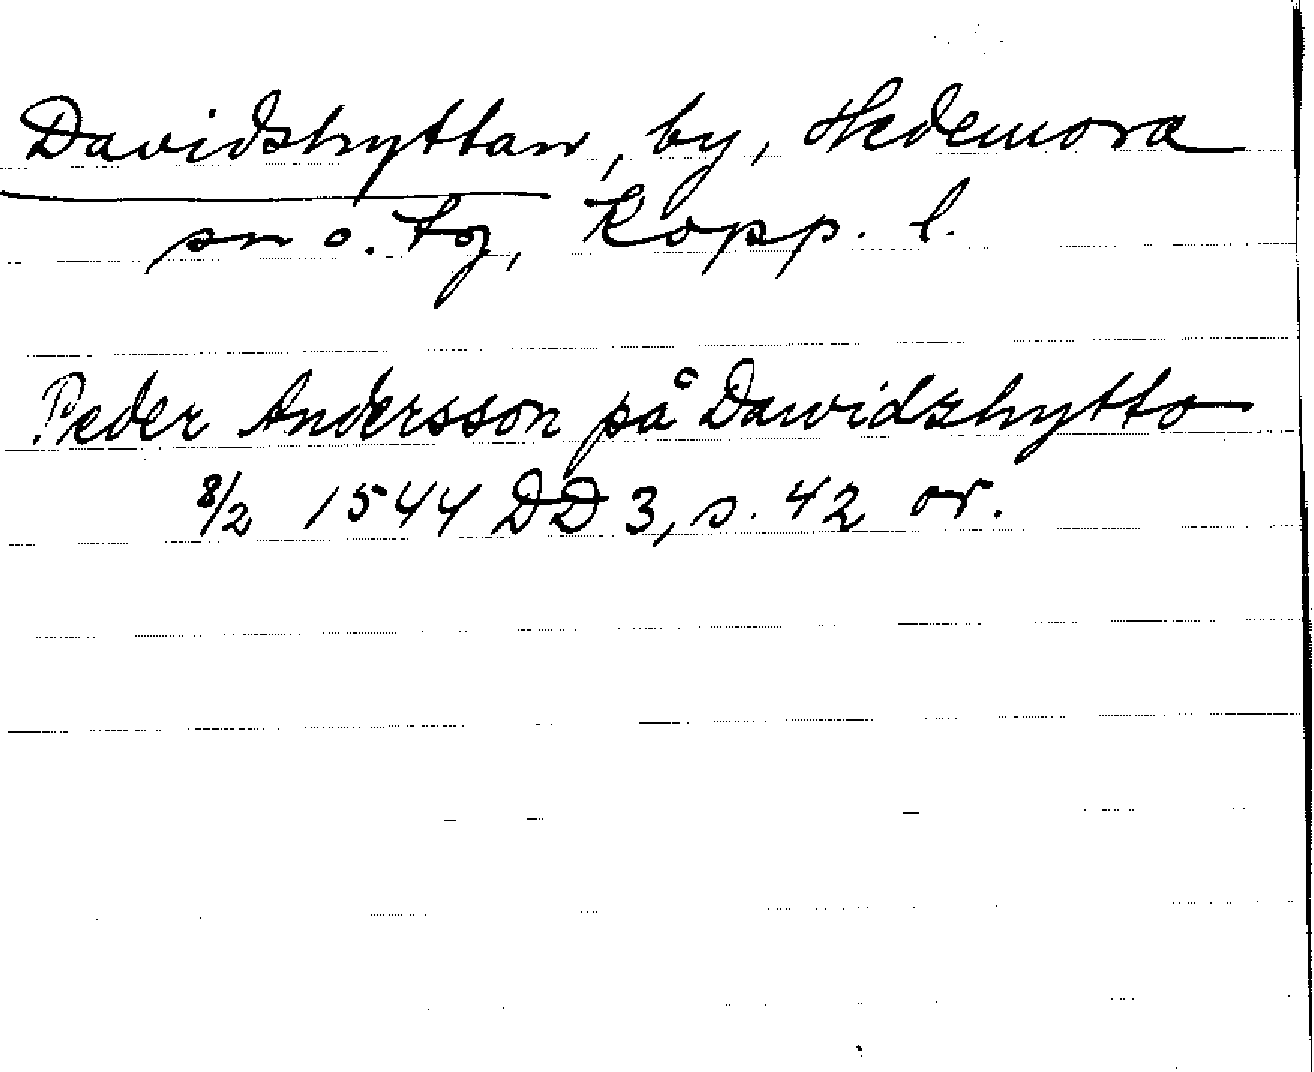 Davidshyttan, by, Hedemora
sn o. tg, Kopp. l.
Peder Andersson på Dawidzhytto
8/2 1544 DD 3, s. 42 or.